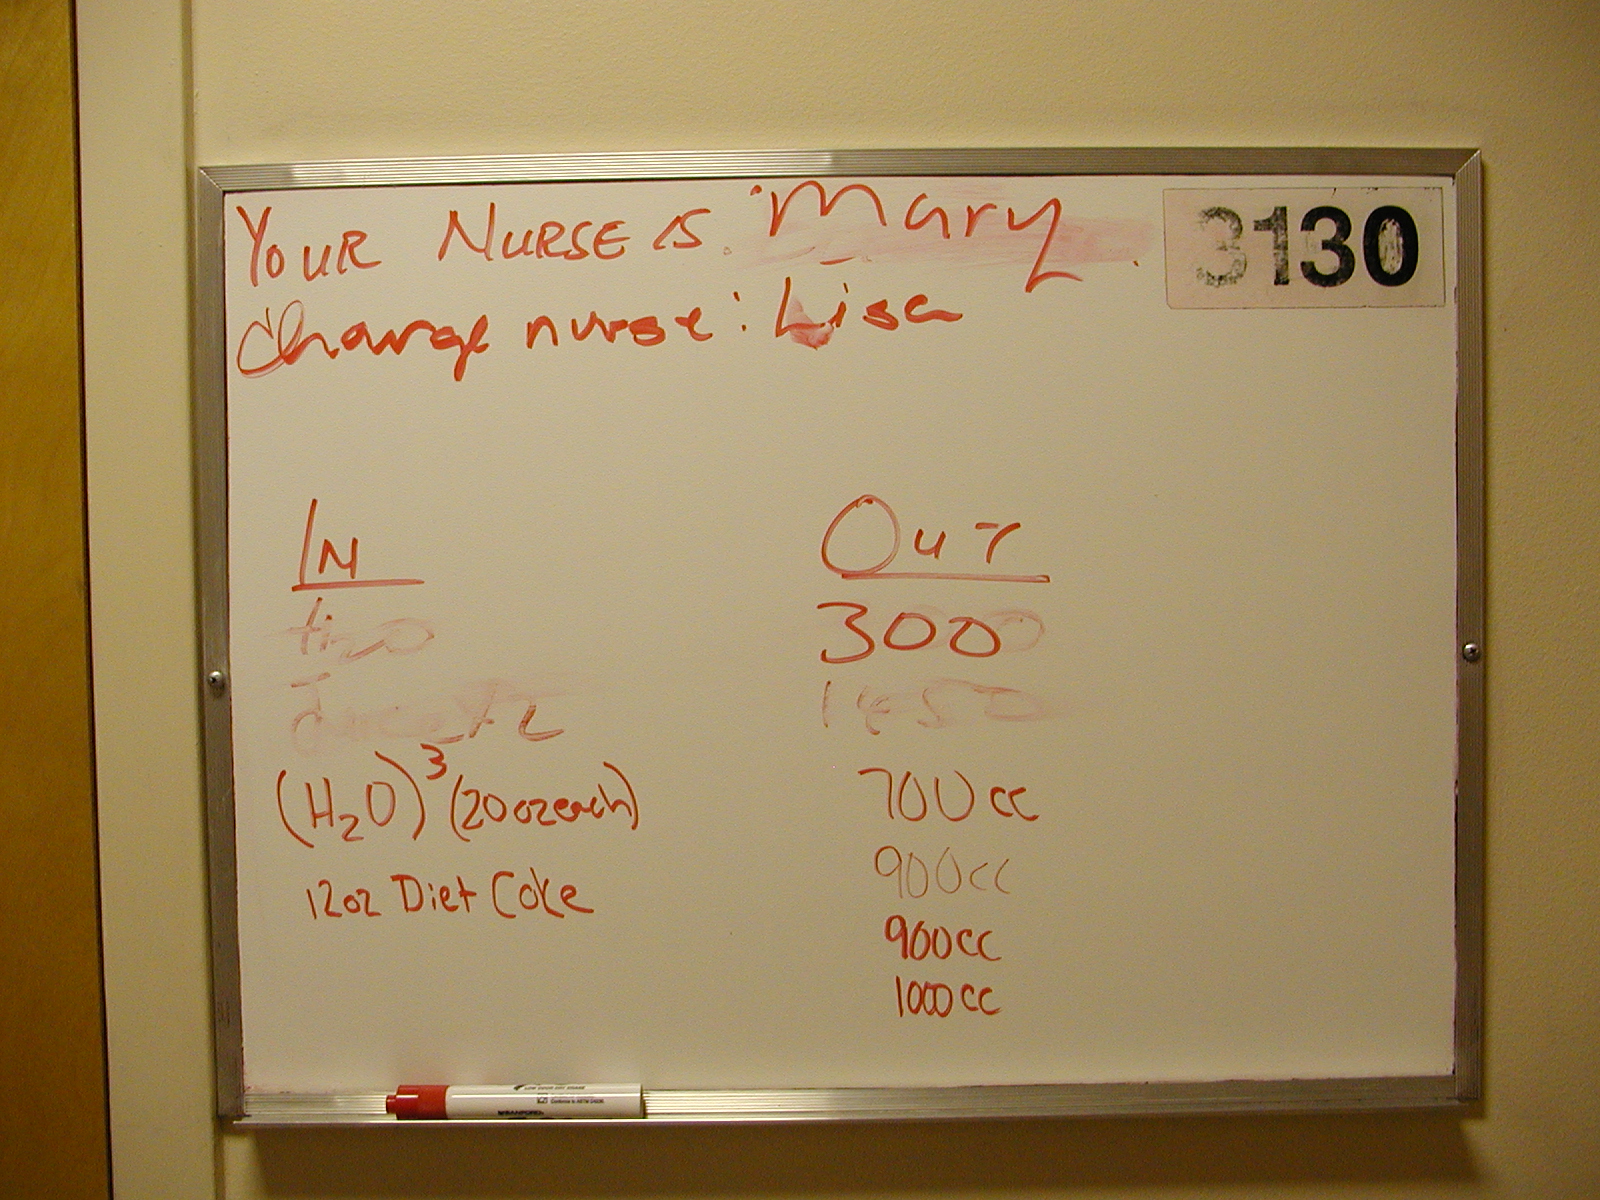 YOUR NURSE IS Mary
3130
Charge nurse: Lisa
IN
OUT
H2O
300
1450
(H₂O)³ (20oz each)
700cc
12oz Diet Coke
900cc
900cc
1000cc